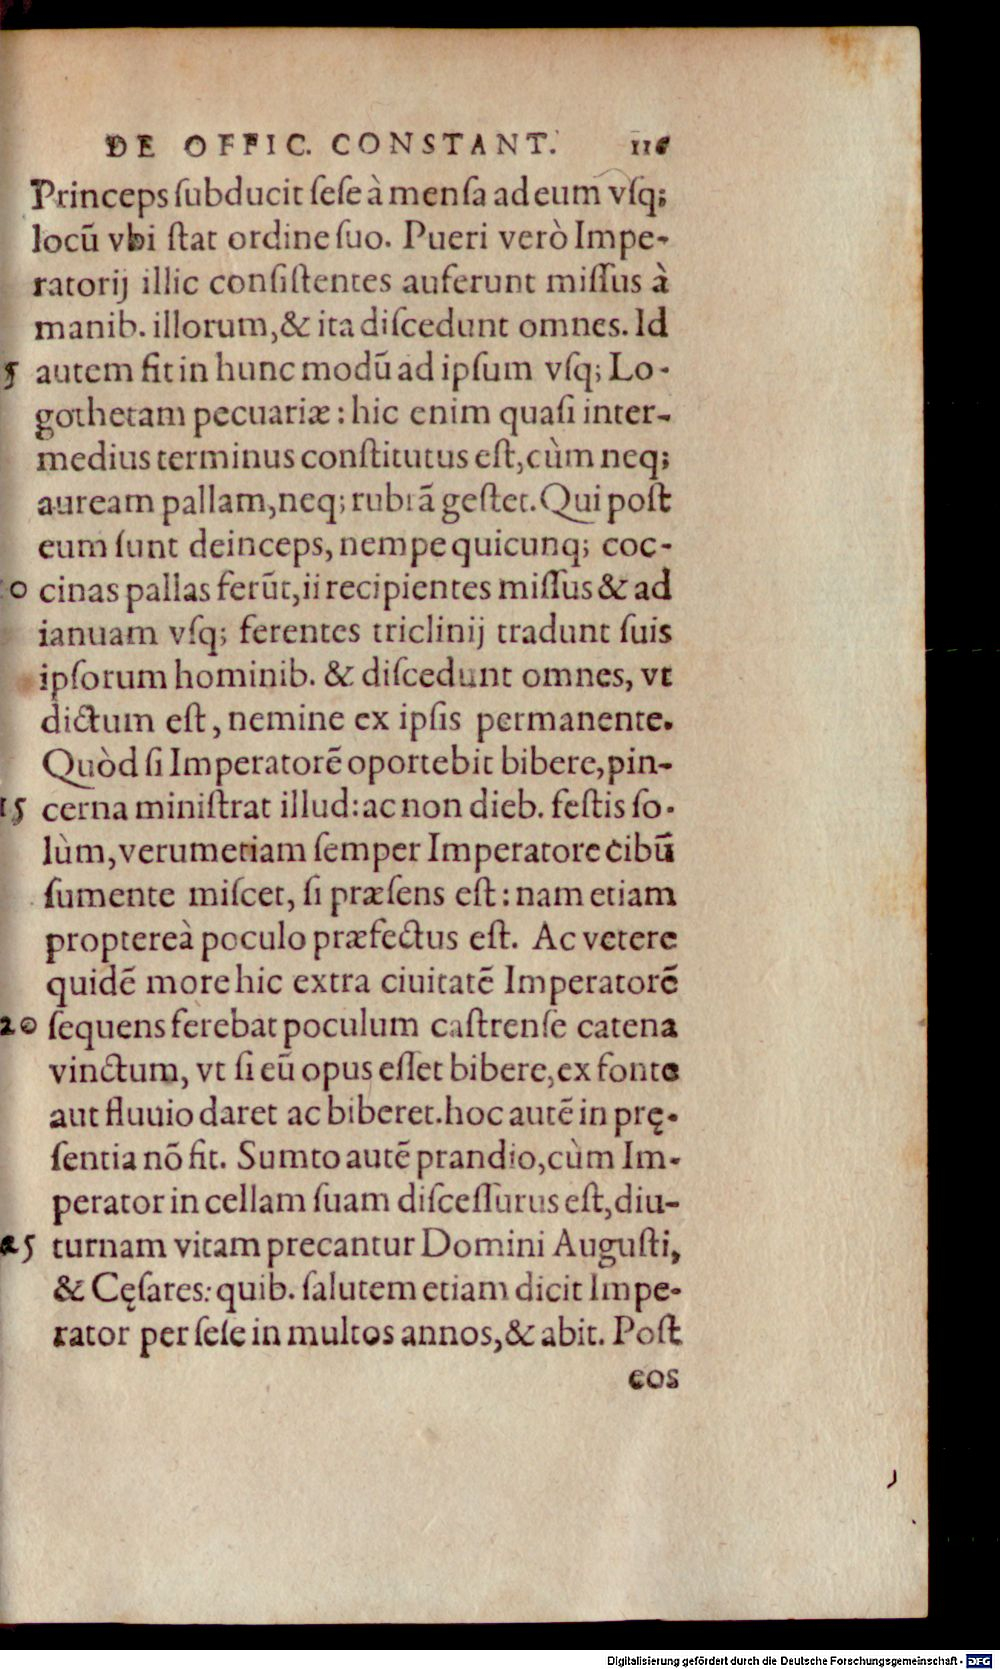 DE OFFIC. CONSTANT.
Princeps ſubducit ſeſe à menſa ad eum vſq;
locū vbi ſtat ordine ſuo. Pueri verò Impe-
ratorij illic conſiſtentes auferunt miſſus à
manib. illorum, & ita diſcedunt omnes. Id
5 autem fit in hunc modū ad ipſum vſq; Lo-
gothetam pecuariæ: hic enim quaſi inter-
medius terminus conſtitutus eſt, cùm neq;
auream pallam, neq; rubrā geſtet. Qui poſt
eum ſunt deinceps, nempe quicunq; coc-
10 cinas pallas ferūt, ii recipientes miſſus & ad
ianuam vſq; ferentes triclinij tradunt ſuis
ipſorum hominib. & diſcedunt omnes, vt
dictum eſt, nemine ex ipſis permanente.
Quòd ſi Imperatorē oportebit bibere, pin-
15 cerna miniſtrat illud: ac non dieb. feſtis ſo-
lùm, verumetiam ſemper Imperatore cibū
ſumente miſcet, ſi præſens eſt: nam etiam
propterеà poculo præfectus eſt. Ac vetere
quidē more hic extra ciuitatē Imperatorē
20 ſequens ferebat poculum caſtrenſe catena
vinctum, vt ſi eū opus eſſet bibere, ex fonte
aut fluuio daret ac biberet. hoc autē in prę-
ſentia nō fit. Sumto autē prandio, cùm Im-
perator in cellam ſuam diſceſſurus eſt, diu-
25 turnam vitam precantur Domini Auguſti,
& Cęſares: quib. ſalutem etiam dicit Impe-
rator per ſeſe in multos annos, & abit. Poſt
eos
Digitalisierung gefördert durch die Deutsche Forschungsgemeinschaft - DFG